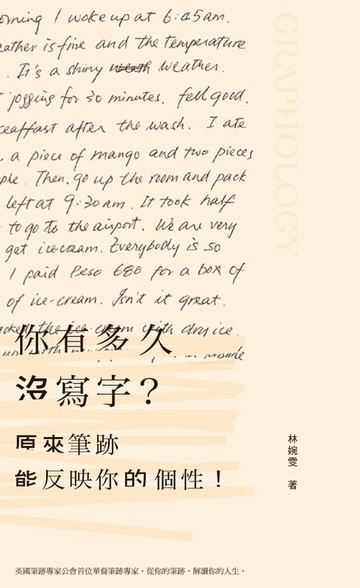 orning I woke up at 6:45am.
eather is fine and the temperature
. It's a shiny weather.
jogging for 30 minutes. fell good.
reaffast after the wash. I ate
a piece of mango and two pieces
ple. Then, go up the room and pack
left at 9:30am. It took half
to go to the airport. We are very
get icecream. Everybody is so
I paid Peso 680 for a box of
of ice-cream. Isn't it great.
the ice-cream with dry ice.
GRAPHOLOGY
你有多久
沒寫字？
原來筆跡
能反映你的個性！
林婉雯 著
英國筆跡專家公會首位華裔筆跡專家，從你的筆跡，解讀你的人生。